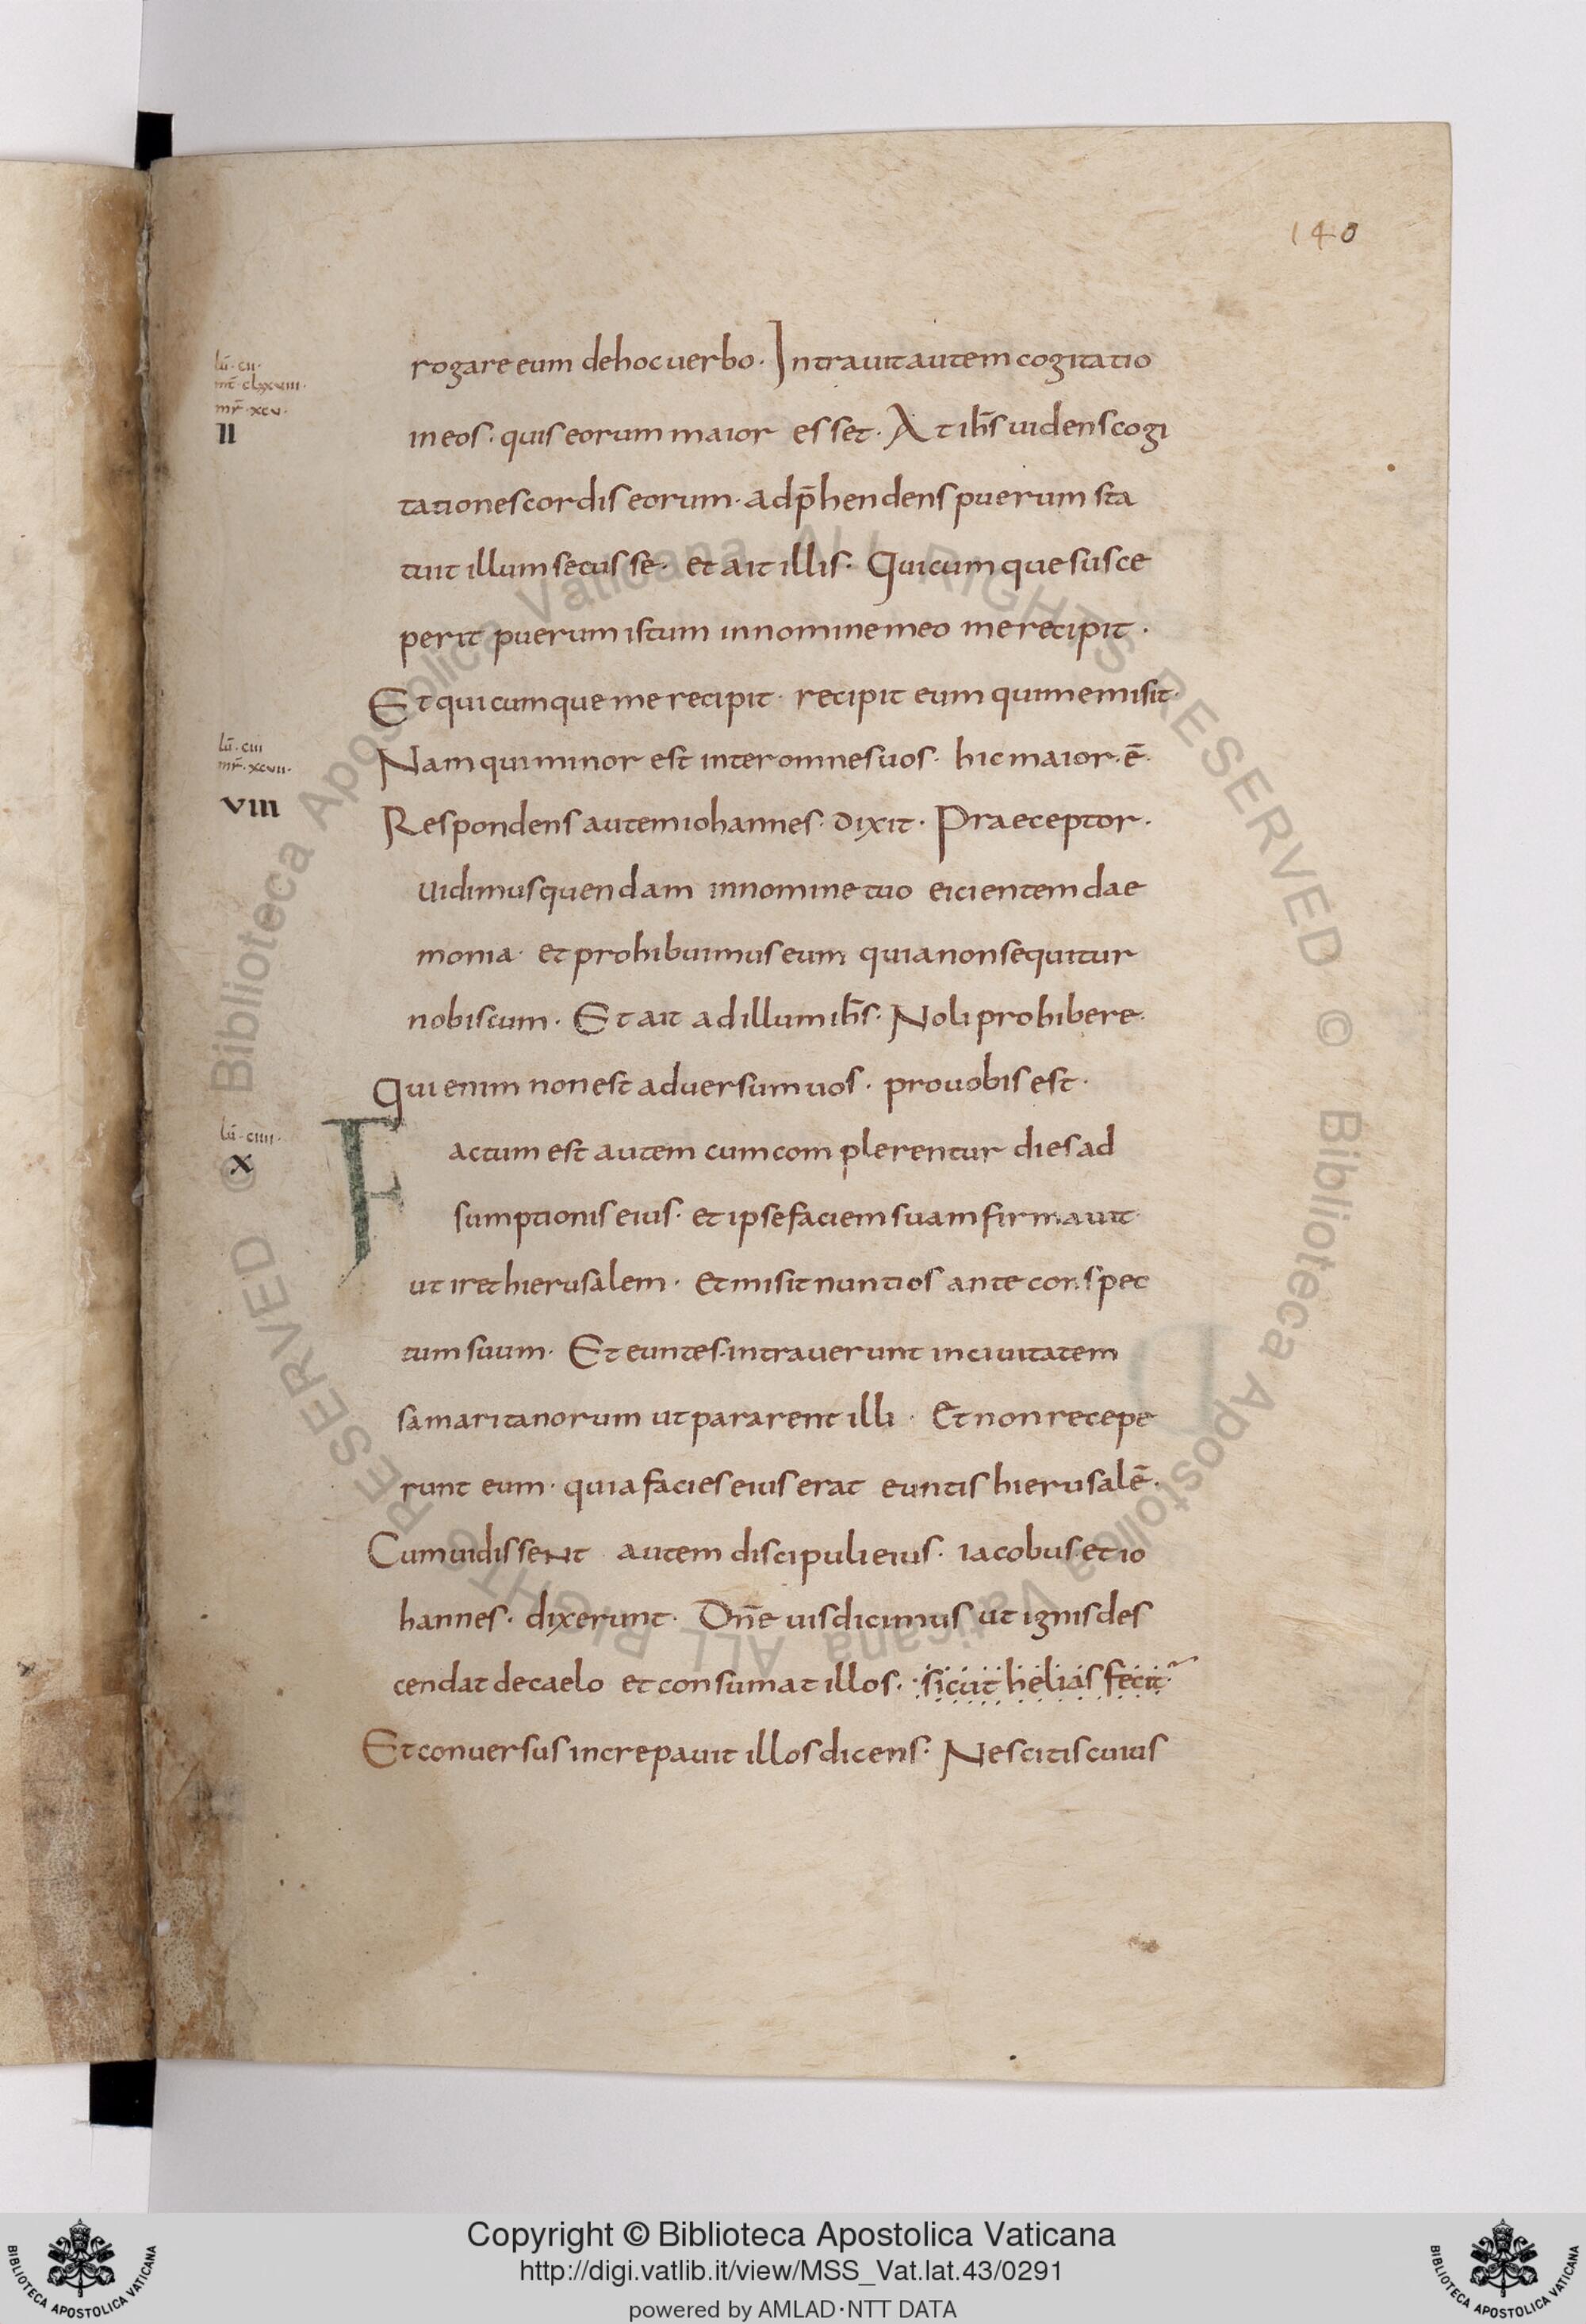 140
lū·cii·
mt̄·clxxviii·
mr̄·xcv·
II
rogare eum de hoc uerbo· Intrauit autem cogitatio
in eos· quis eorum maior esset· At ih̄s uidens cogi
tationes cordis eorum· adp̄hendens puerum sta
tuit illum secus se· et ait illis· Quicumque susce
perit puerum istum in nomine meo me recipit·
Et quicumque me recipit· recipit eum qui me misit·
lū·ciii
mr̄·xcvii·
VIII
Nam qui minor est inter omnes uos· hic maior·ē·
Respondens autem iohannes· dixit· Praeceptor·
uidimus quendam in nomine tuo eicientem dae
monia· et prohibuimus eum quia non sequitur
nobiscum· Et ait ad illum ih̄s· Noli prohibere·
Qui enim non est aduersum uos· pro uobis est·
lū·ciiii·
X
Factum est autem cum complerentur dies ad
sumptionis eius· et ipse faciem suam firmauit·
ut iret hierusalem· Et misit nuntios ante conspec
tum suum· Et euntes·intrauerunt in ciuitatem
samaritanorum ut pararent illi· Et non recepe
runt eum· quia facies eius erat euntis hierusalē·
Cum uidissent autem discipuli eius· iacobus·et io
hannes· dixerunt· Dn̄e uis dicimus ut ignis des
cendat de caelo et consumat illos· sicut helias fecit
Et conuersus increpauit illos dicens· Nescitis cuius
© Biblioteca Apostolica Vaticana ALL RIGHTS RESERVED © Biblioteca Apostolica Vaticana ALL RIGHTS RESERVED
BIBLIOTECA APOSTOLICA VATICANA
Copyright © Biblioteca Apostolica Vaticana
http://digi.vatlib.it/view/MSS_Vat.lat.43/0291
powered by AMLAD·NTT DATA
BIBLIOTECA APOSTOLICA VATICANA